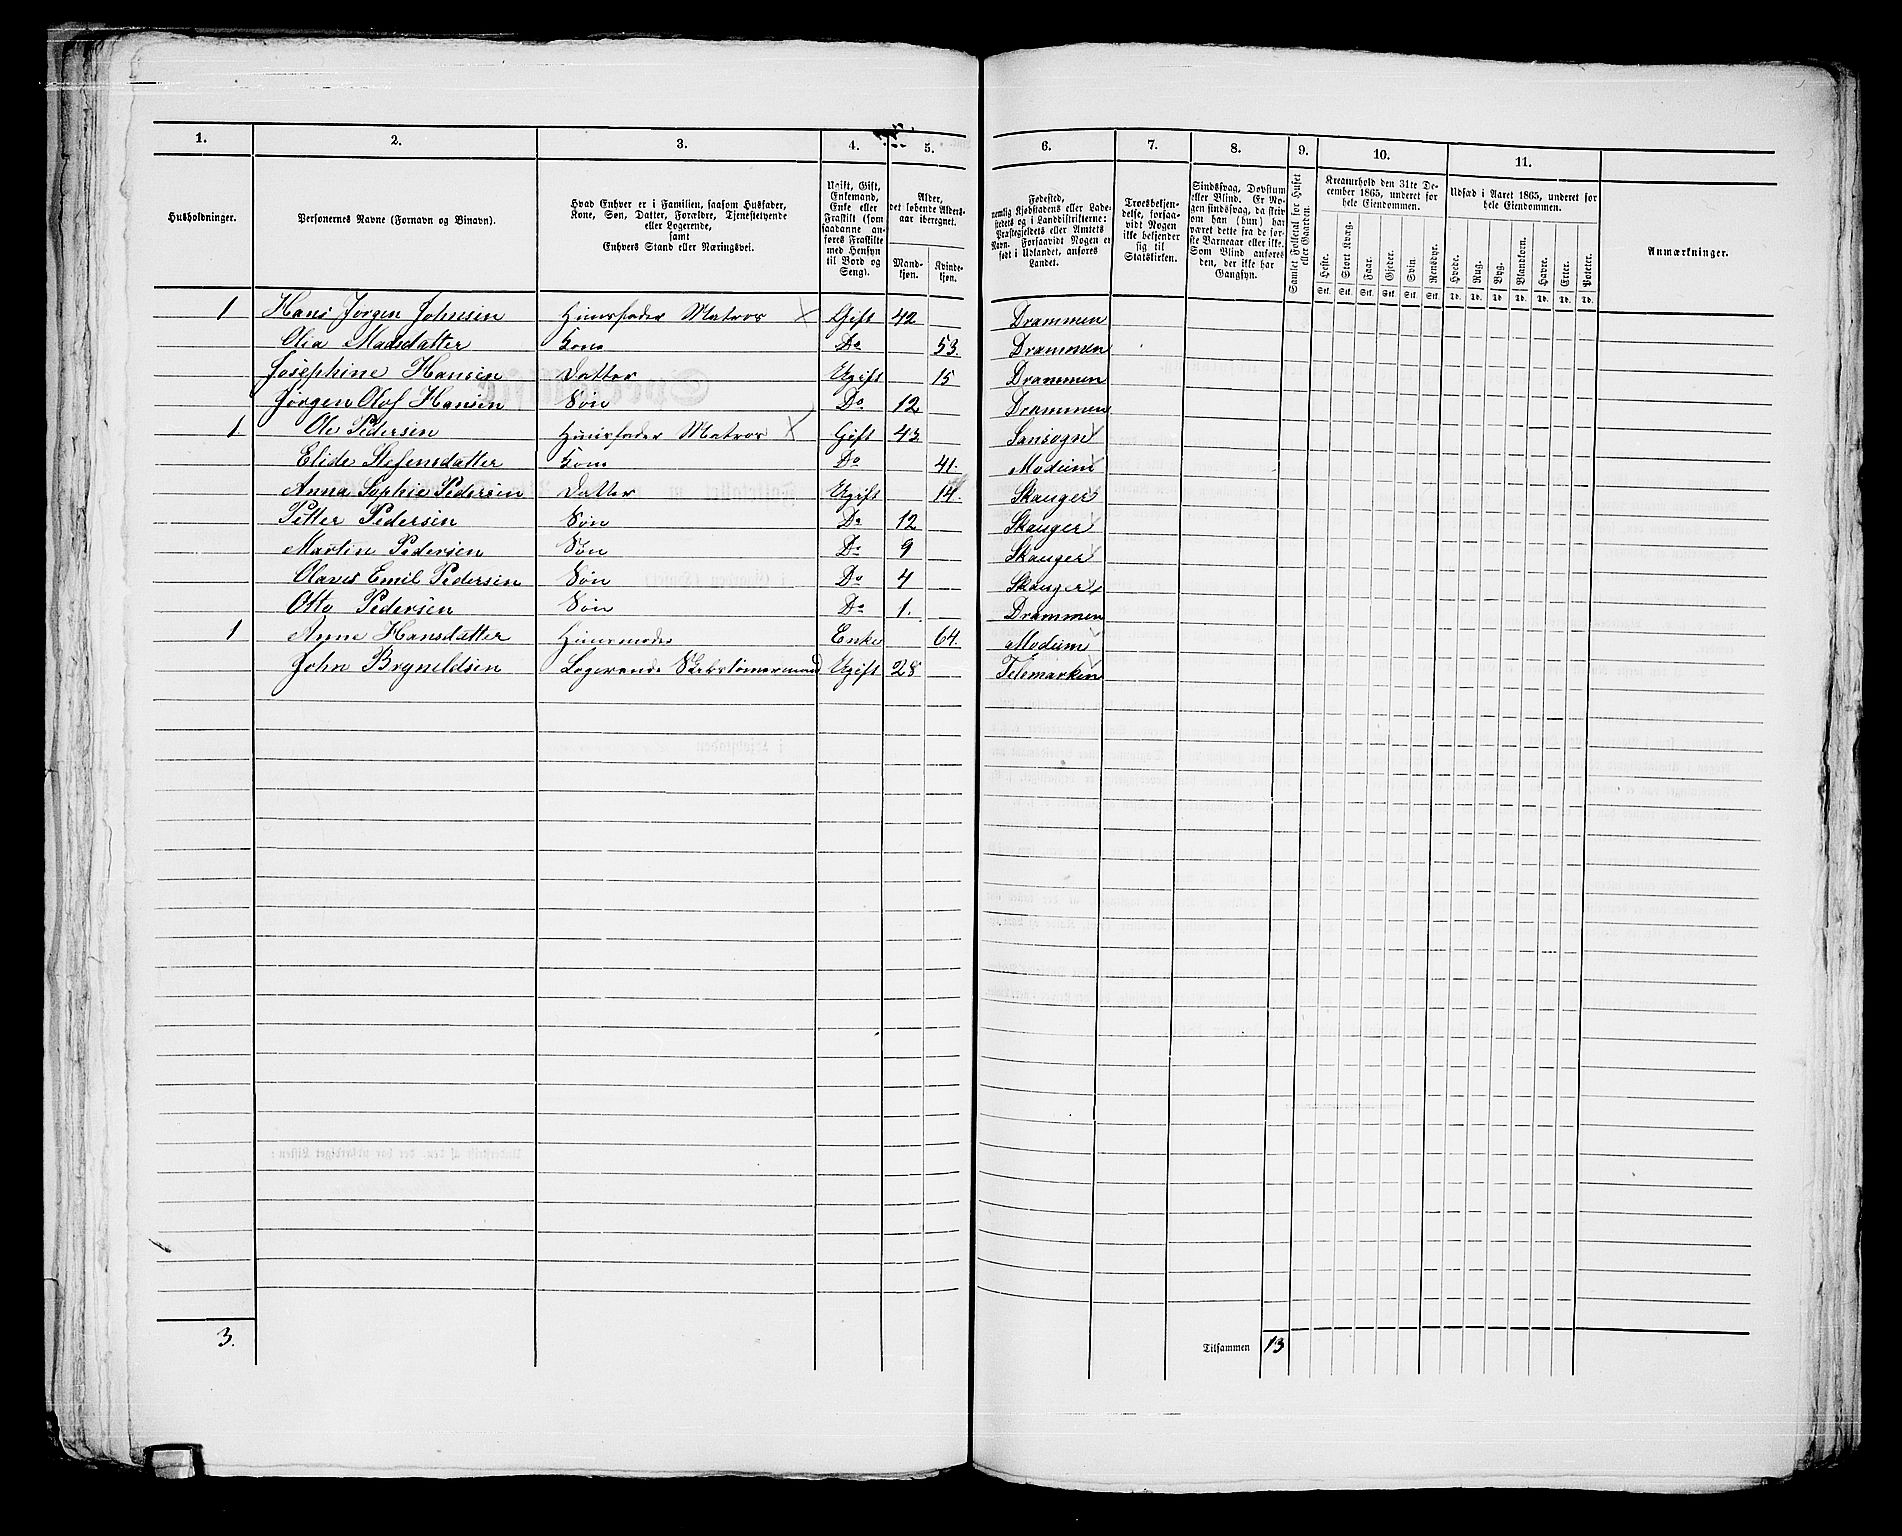 1. 2. 3. 4. 5. 6. 7. 8. 9. 10. 11.
Husholdninger.
Personernes Navne (Fornavn og Binavn).
Hvad Enhver er i Familien, saasom Husfader,
Kone, Søn, Datter, Forældre, Tjenestetyende
eller Logerende,
samt
Enhvers Stand eller Næringsvei.
Ugift, Gift,
Enkemand,
Enke eller
Fraskilt (som
saadanne an-
føres Fraskilte
med Hensyn
til Bord og
Seng).
Alder,
det løbende Alders-
aar iberegnet.
Mand-
kjøn.
Kvinde-
kjøn.
Fødested,
nemlig Kjøbstadens eller Lade-
stedets og i Landdistrikterne:
Præstegjeldets eller Amtets
Navn. Forsaavidt Nogen er
født i Udlandet, anføres
Landet.
Troesbekjen-
delse, forsaa-
vidt Nogen
ikke bekjender
sig til
Statskirken.
Sindssvag, Døvstum
eller Blind. Er No-
gen sindssvag, da skriv
om han (hun) har
været dette fra de før-
ste Barneaar eller ikke.
Som Blind anføres
den, der ikke har
Gangsyn.
Samlet Folketal for Huset
eller Gaarden.
Kreaturhold den 31te De-
cember 1865, underet for
hele Eiendommen.
Heste. Stort Kvæg. Faar. Gjeder. Svin. Rensdyr.
Stk. Stk. Stk. Stk. Stk. Stk.
Udsæd i Aaret 1865, underet for
hele Eiendommen.
Hvede. Rug. Byg. Blandkorn. Havre. Erter. Poteter.
Td. Td. Td. Td. Td. Td. Td.
Anmærkninger.
1 Hans Jørgen Johnsen Huusfader Matros Gift 42 Drammen
Olia Madsdatter Kone Do 53. Drammen
Josephine Hansen Datter Ugift 15 Drammen
Jørgen Olof Hansen Søn Do 12 Drammen
1. Ole Pedersen Huusfader Matros Gift 43 Sansogn
Elide Stefensdatter Kone Do 41. Modum
Anna Sophie Pedersen Datter Ugift 14. Skauger
Petter Pedersen Søn Do 12 Skauger
Martin Pedersen Søn Do 9 Skauger
Olaves Emil Pedersen Søn Do 4 Skauger
Otto Pedersen Søn Do 1. Drammen
1 Anne Hansdatter Huusmoder Enke 64. Modum
John Bryneldsen Logerende Skibstømermand Ugift 28 Telemarken
3.
Tilsammen 13